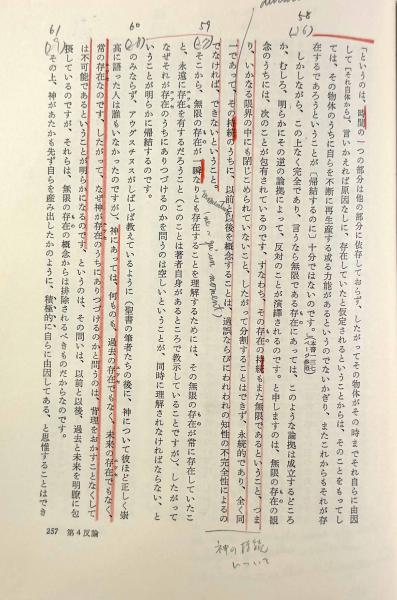 「というのは、時間の一つの部分は他の部分に依存しておらず、したがってその物体がその時までそれ自らに由因
して〔それ自体から〕、言いかえれば原因なしに、存在していたと仮定されるということからは、そのことをもってし
ては、その物体のうちに自らを不断に再生産する或る力能があるというのでないかぎり、またこれからもそれが存
在するであろうということが〔帰結するのに〕十分ではないのです。
しかしながら、この上なく完全であり、言うなら無限である存在にあっては、このような論拠は成立するどころ
か、むしろ、明らかにその逆の論拠によって、反対のことが演繹されるのです。と申しますのは、無限の存在の観
念のうちには、次のことが包有されているのです、すなわち、その存在の持続もまた無限であるということ、つま
り、いかなる限界の中にも閉じこめられていないこと、したがって分割することはできず、永続的であり、全く同
一であって、その持続のうちに、以前と以後を概念することは、過誤ならびにわれわれの知性の不完全性によるの
でなければ、できないということ。
そこから、無限の存在が一瞬なりとも存在することを理解するためには、その無限の存在が常に存在していたこ
と、永遠に存在を有するだろうこと(このことは著者自身があるところで教示していることですが)、したがって
なぜそれが存在のうちにありつづけるのかを問うのは空しいということが、同時に理解されなければならない、と
いうことが明らかに帰結するのです。
のみならず、アウグスチヌスがしばしば教えているように(聖書の筆者たちの後に、神について彼ほど正しく崇
高に語った人は誰もいなかったのですが)、神にあっては、何ものも、過去の存在でもなく、未来の存在でもなく、
常の存在なのです、したがって、なぜ神が存在のうちにありつづけるのかと問うのは、背理をおかすことなくして
は不可能であるということが明らかになるのです、というのは、その問いは、以前と以後、過去と未来を明瞭に包
摂しているのですが、それらは、無限の存在の概念からは排除されるべきものだからなのです。
その上、神があたかも先ず自らを産み出したかのように、積極的に自らに由因してある、と思惟することはでき
257 第4反論
58
59
60
61
神の持続
について